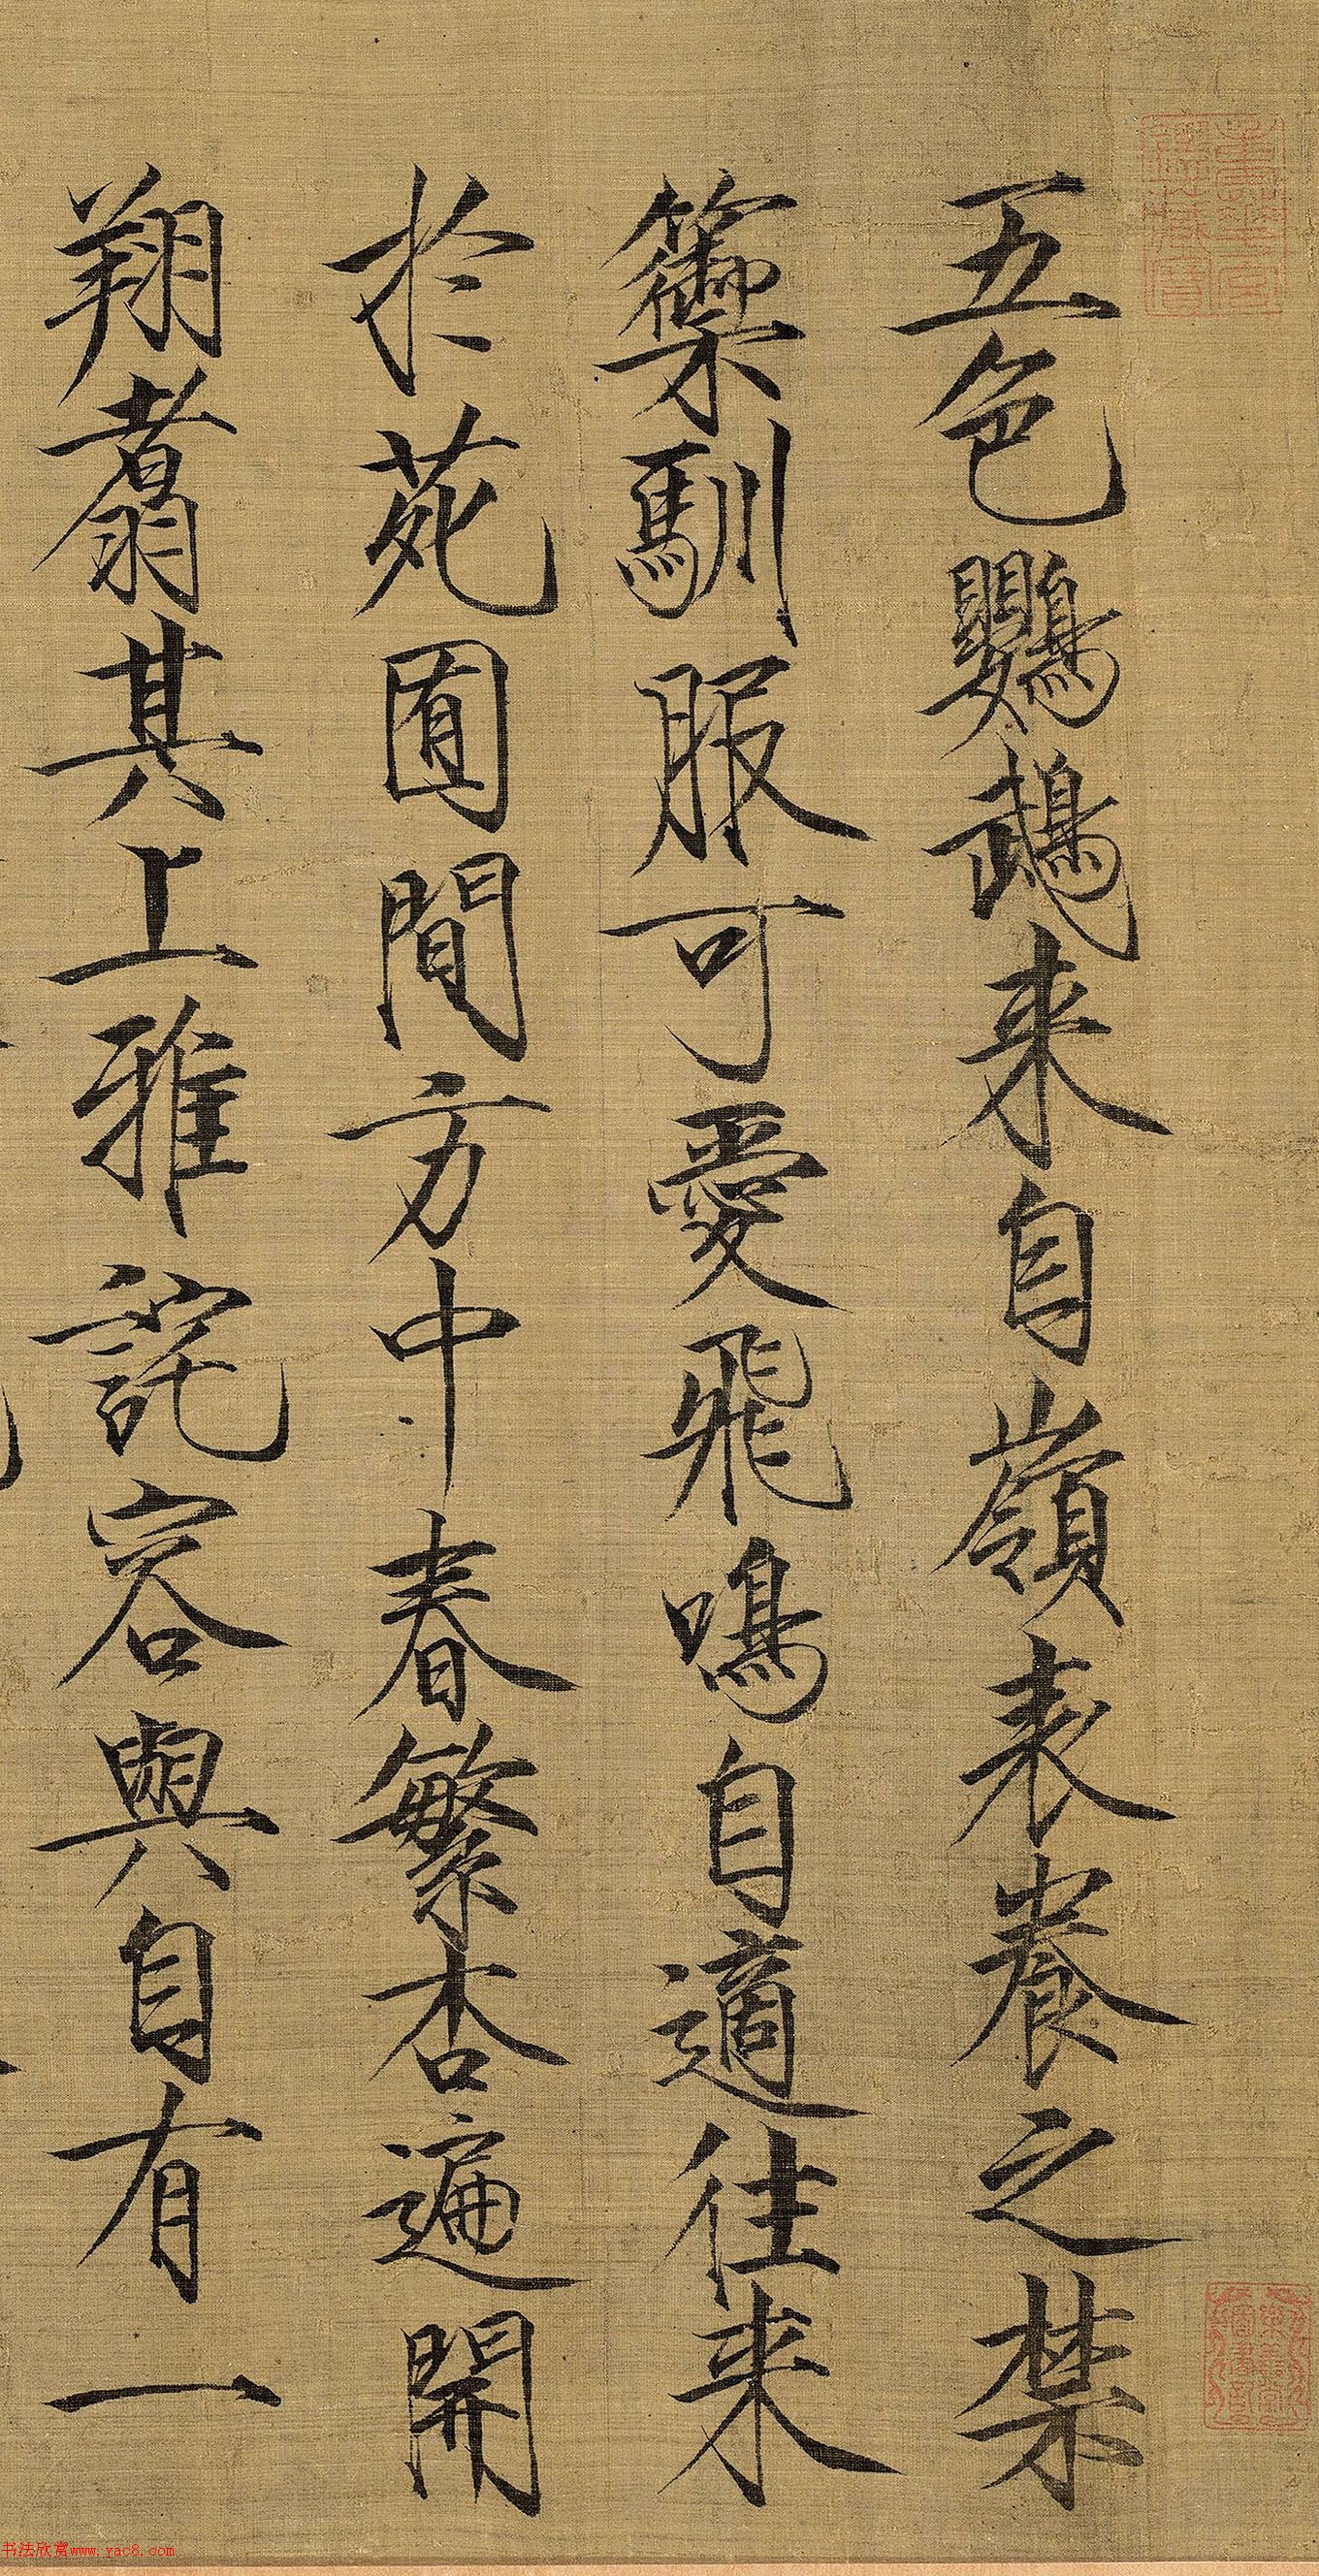 五色鸚鵡来自嶺表養之禁
籞馴服可愛飛鳴自適往来
於苑囿間方中春繁杏遍開
翔翥其上雅詫容與自有一
书法欣赏www.yac8.com